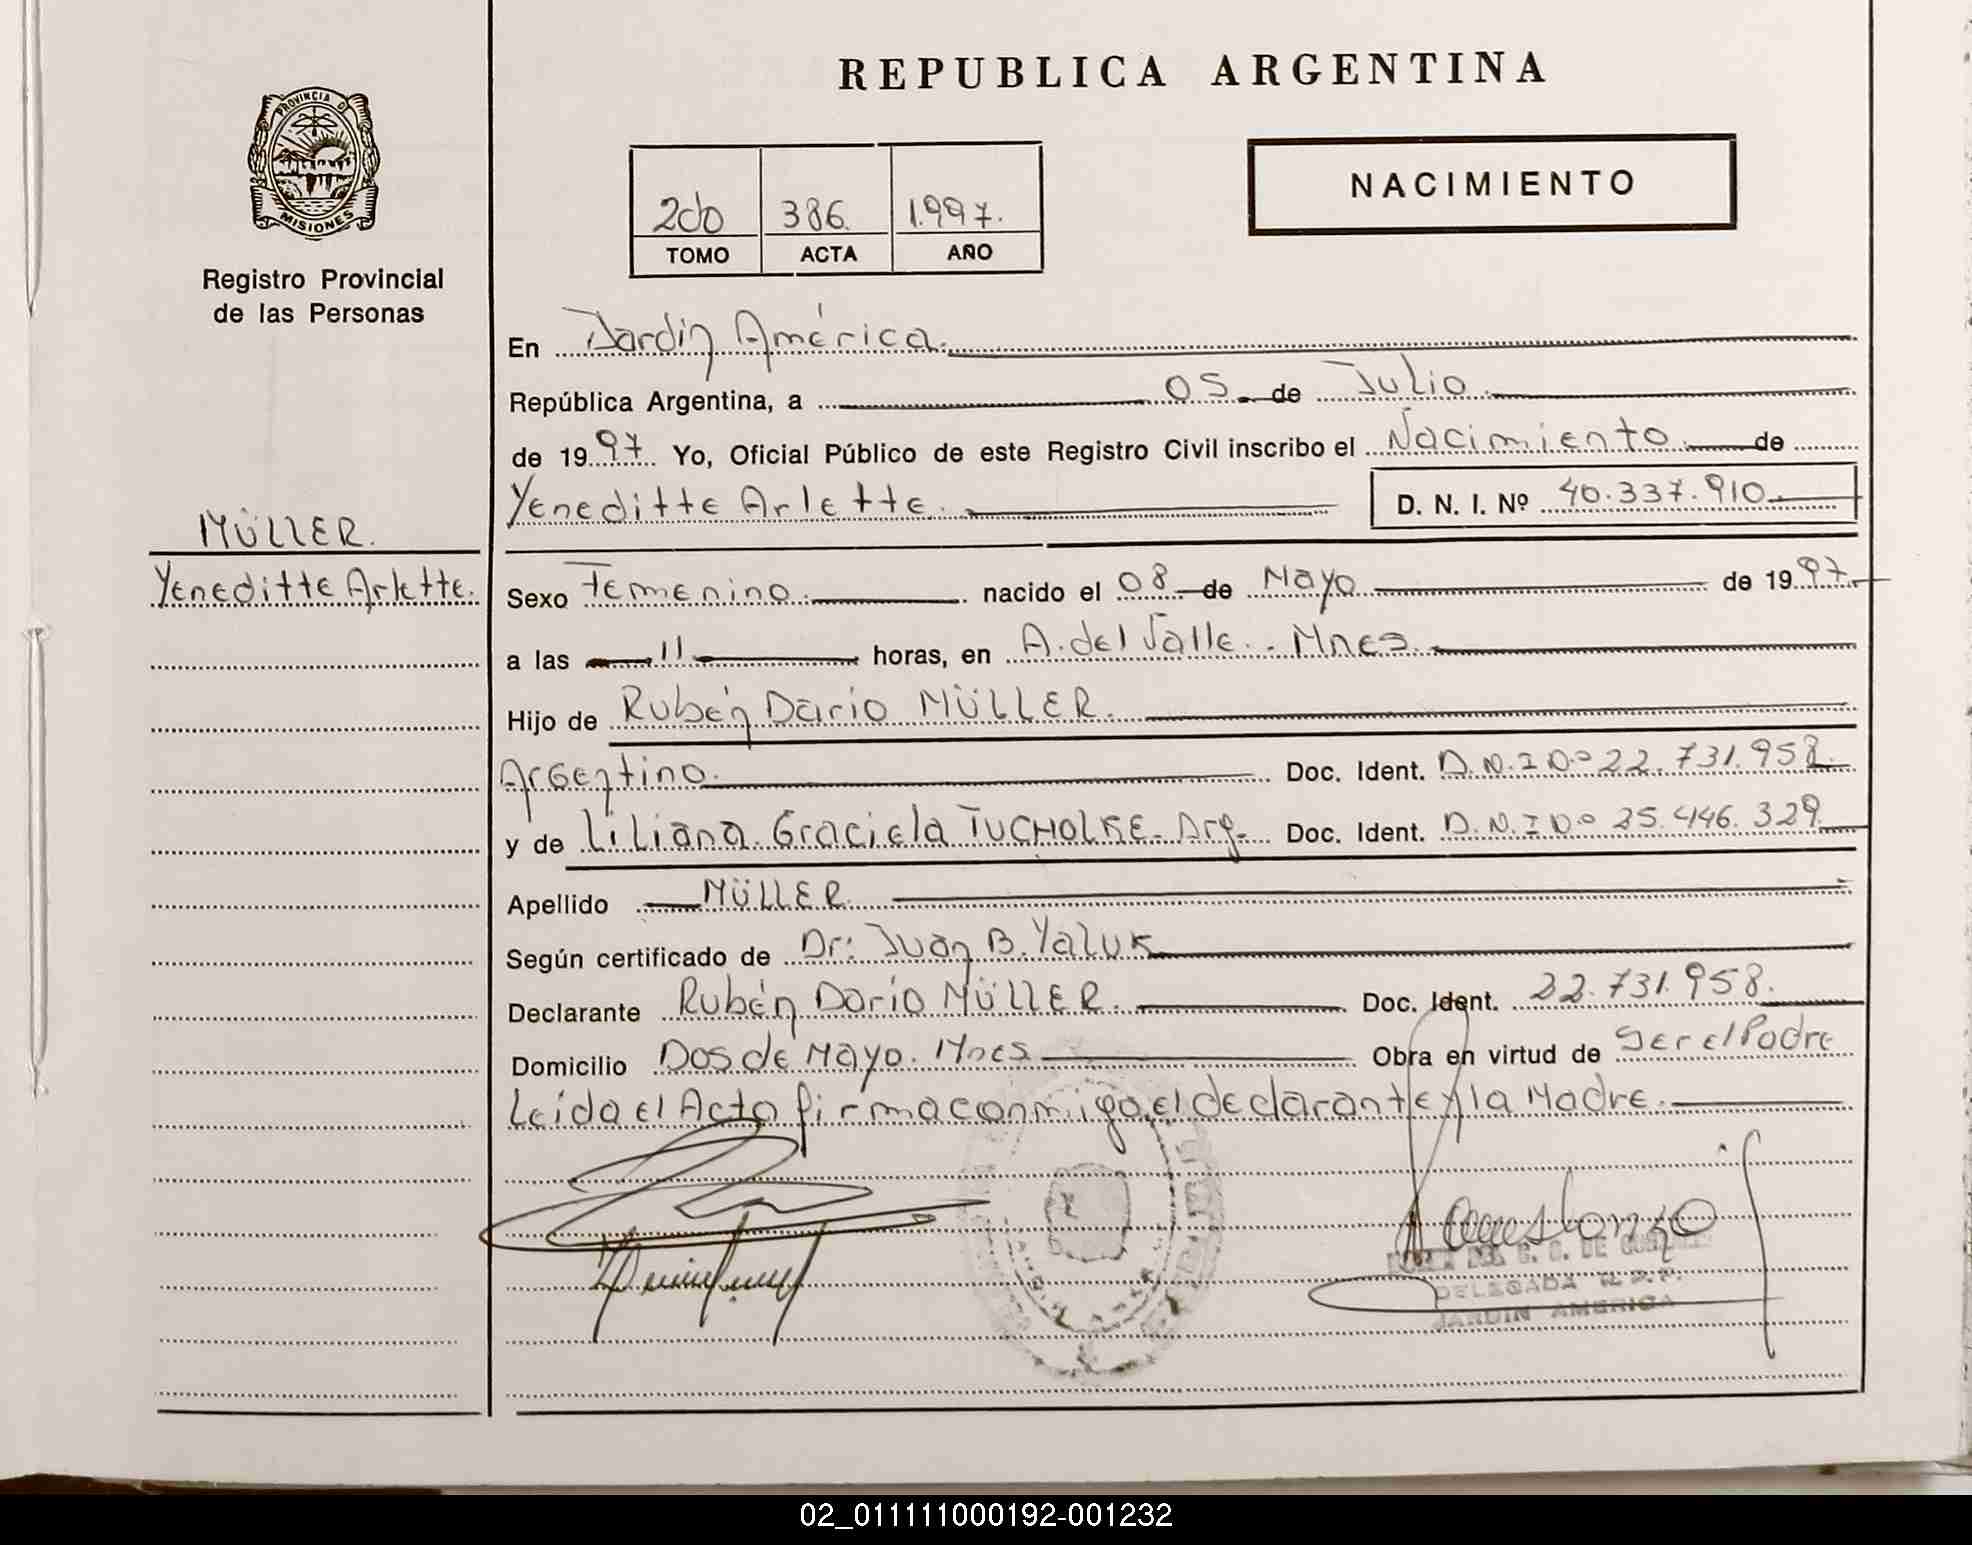 REPUBLICA ARGENTINA
PROVINCIA D
MISIONES
Registro Provincial
de las Personas
2do 386. 1.997.
TOMO ACTA AÑO
NACIMIENTO
En Jardín América.
República Argentina, a 05 de Julio
de 1997 Yo, Oficial Público de este Registro Civil inscribo el Nacimiento de
Yeneditte Arlette. D. N. I. Nº 40.337.910
MÜLLER.
Yeneditte Arlette.
Sexo Femenino. nacido el 08 de Mayo de 1997
a las 11 horas, en A. del Valle. - Mnes.
Hijo de Rubén Darío MÜLLER.
Argentino. Doc. Ident. D.N.I Nº 22.731.958.
y de Liliana Graciela TUCHOLKE - Arg. Doc. Ident. D.N.I Nº 25.446.329
Apellido MÜLLER
Según certificado de Dr: Juan B. Yaluk
Declarante Rubén Darío MÜLLER. Doc. Ident. 22.731.958.
Domicilio Dos de Mayo. Mnes Obra en virtud de ser el Padre
Leída el Acta firma conmigo el declarante y la Madre.
DELEGADA R.P.P.
JARDIN AMERICA
02_011111000192-001232